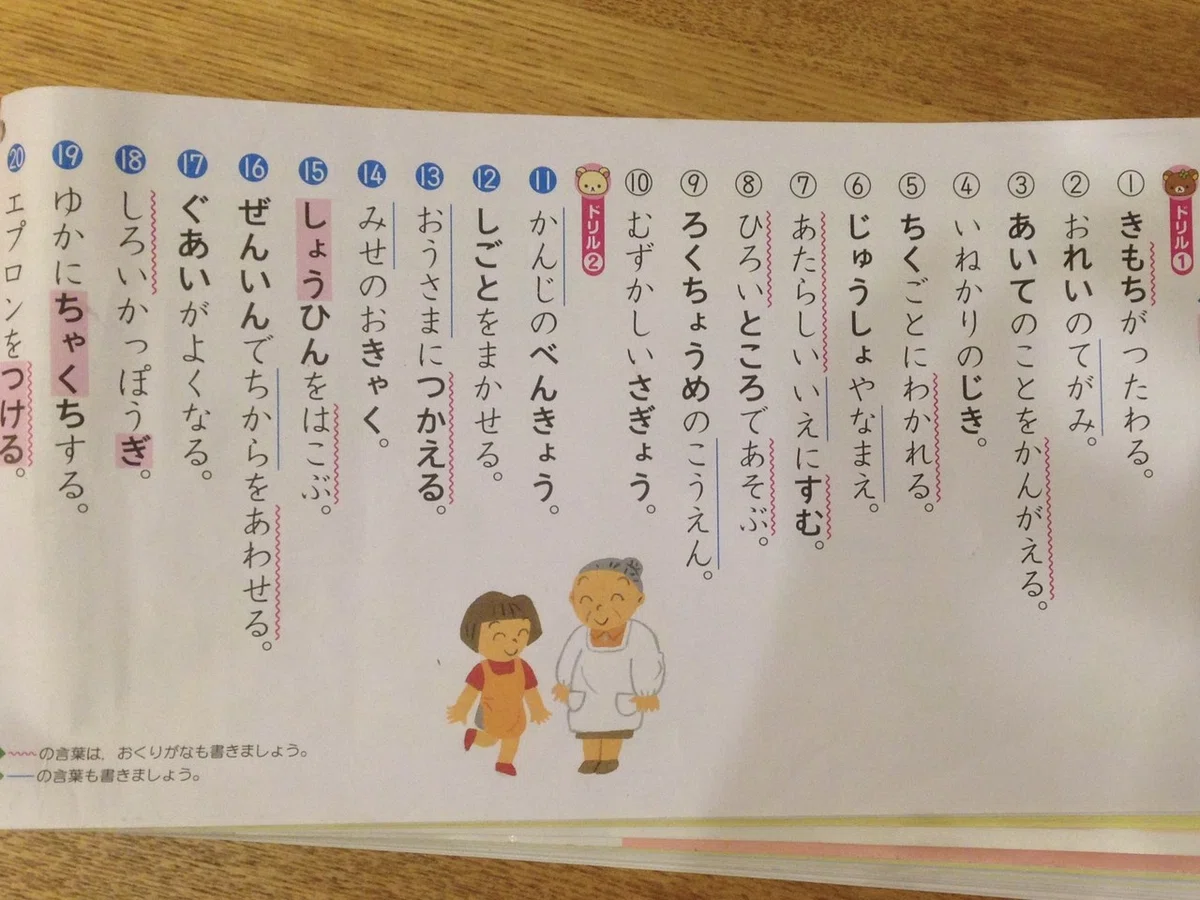 ドリル①
①きもちがつたわる。
②おれいのてがみ。
③あいてのことをかんがえる。
④いねかりのじき。
⑤ちくごとにわかれる。
⑥じゅうしょやなまえ。
⑦あたらしいいえにすむ。
⑧ひろいところであそぶ。
⑨ろくちょうめのこうえん。
⑩むずかしいさぎょう。
ドリル❷
⓫かんじのべんきょう。
⓬しごとをまかせる。
⓭おうさまにつかえる。
⓮みせのおきゃく。
⓯しょうひんをはこぶ。
⓰ぜんいんでちからをあわせる。
⓱ぐあいがよくなる。
⓲しろいかっぽうぎ。
⓳ゆかにちゃくちする。
⓴エプロンをつける。
の言葉は,おくりがなも書きましょう。
の言葉も書きましょう。